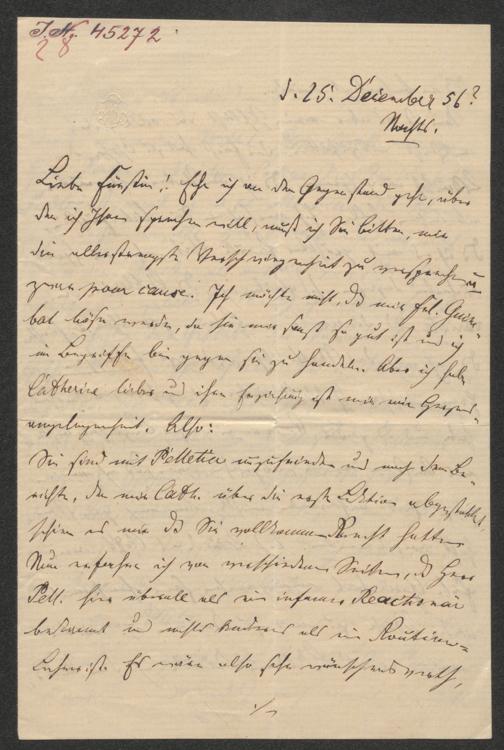 J. N. 45272
28
d. 25. December 56?
Nachts.
Liebe Fürstin! Ehe ich an den Gegenstand gehe, über
den ich Ihnen sprechen will, muß ich Sie bitten, mir
die allerstrengste Verschwiegenheit zu versprechen u
zwar pour cause. Ich möchte nicht, daß mir Frl.
böse werde, da sie mir sonst so gut ist und ich
im Begriffe bin gegen sie zu handeln. Aber ich habe
Catherine lieber und ihre Erziehung ist mir eine Herzens-
angelegenheit. Also:
Sie sind mit Pelletier unzufrieden und nach dem Be-
richte, den mir Cath. über die erste Lektion abgestattet,
schien es mir daß Sie vollkommen Recht hatten
Nun erfahre ich von verschiedenen Seiten, daß Herr
Pell. hier überall als ein infamer Reactionär
bekannt und nichts Anderes als ein Routine-
Lehrer ist. Es wäre also sehr wünschenswerth,
./.